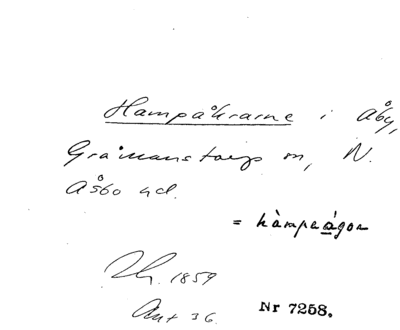 Hampåkrarne i Åby,
Gråmanstorps sn, N.
Åsbo hd.
= hàmpeågor
1859
Ant 36. Nr 7258.